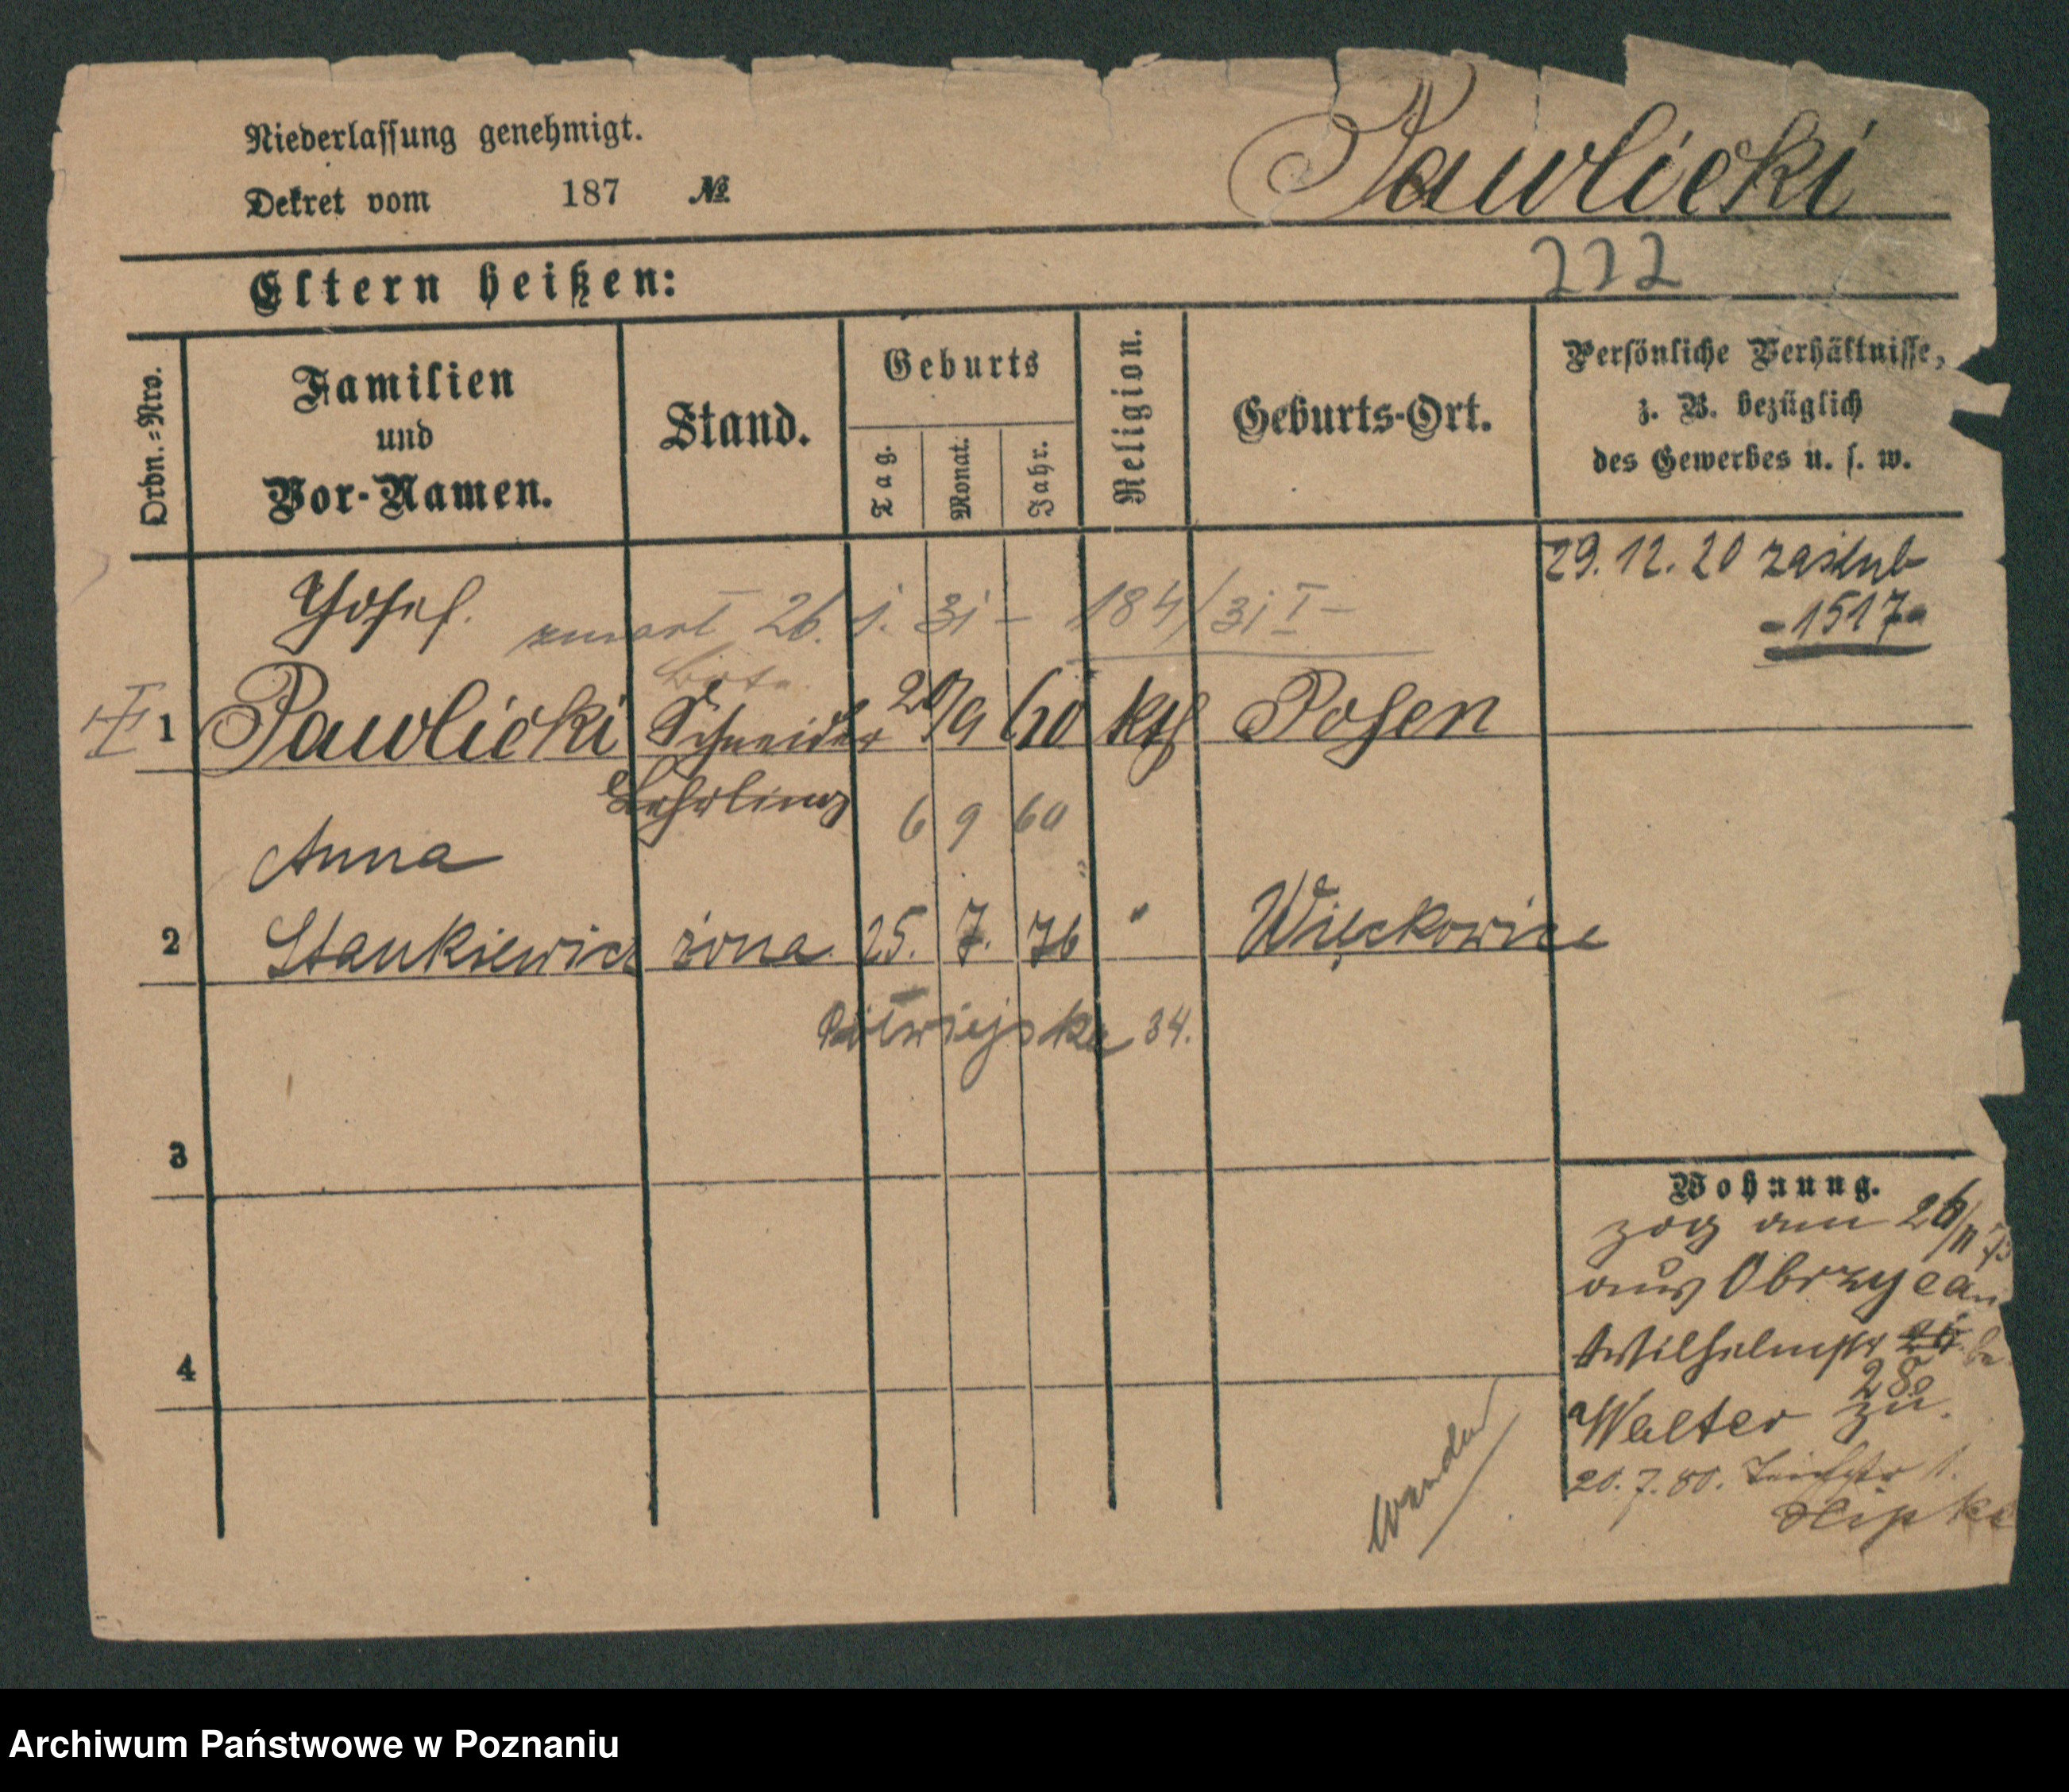 Niederlassung genehmigt.
Dekret vom 187 №
Pawlicki
222
Eltern heißen:
Ordn.=Nro.
Familien
und
Vor-Namen.
Stand.
Geburts
Tag.
Monat.
Jahr.
Religion.
Geburts-Ort.
Persönliche Verhältnisse,
z. B. bezüglich
des Gewerbes u. s. w.
29.12.20 zaślub
-1517-
Josef.
zmarł 26. 1. 31 - 184/31 I -
Bote
1 Pawlicki Schneider 20/9 60 kth Posen
Lehrling
6 9 60
Anna
2 Stankiewicz żona 25. 7. 76 " Więckowice
Półwiejska 34.
3
4
Wohnung.
zog am 26/11
aus Obrzyca
Wilhelmstr 26
28
Walter zu.
20.7.80. Teichstr 1.